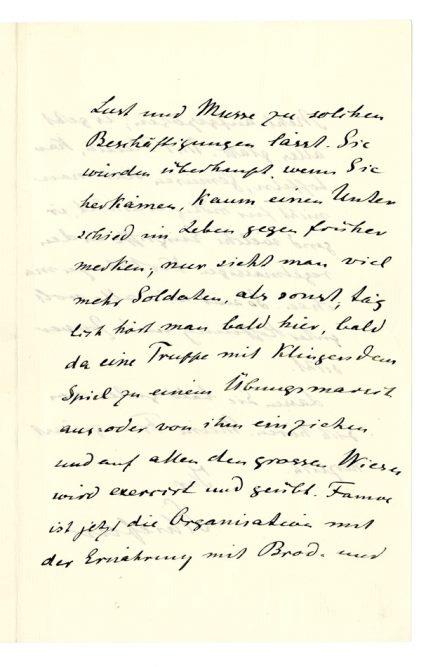 Lust und Musse zu solchen
Beschäftigungen lässt. Sie
würden überhaupt, wenn Sie
herkämen, kaum einen Unter
schied im Leben gegen früher
merken; nur sieht man viel
mehr Soldaten, als sonst; täg
lich hört man bald hier, bald
da eine Truppe mit Klingendem
Spiel zu einem Übungsmarsch
aus oder von ihm einziehen
und auf allen den grossen Wiesen
wird exercirt und geübt. Famos
ist jetzt die Organisation mit
der Ernährung mit Brod- und